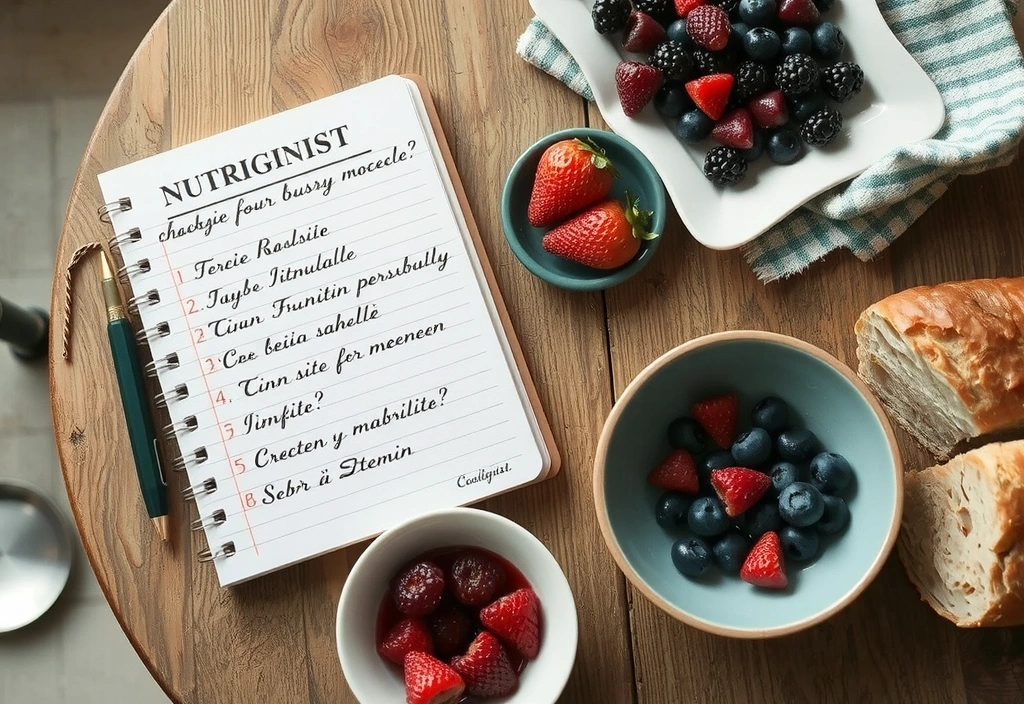 NUTRIGINIST
chackgie four bussy mocecle?
1 Tercie Roslsile
2. Taybe Jitnulalle
2 Tinun Frunitin persıbully
3 Cee beiia sahellè
4. Tinn site fer meeneen
5 Jimfite?
5 Crecten y mabrilite?
8 Sebr ä Stemin
Coallqııst.